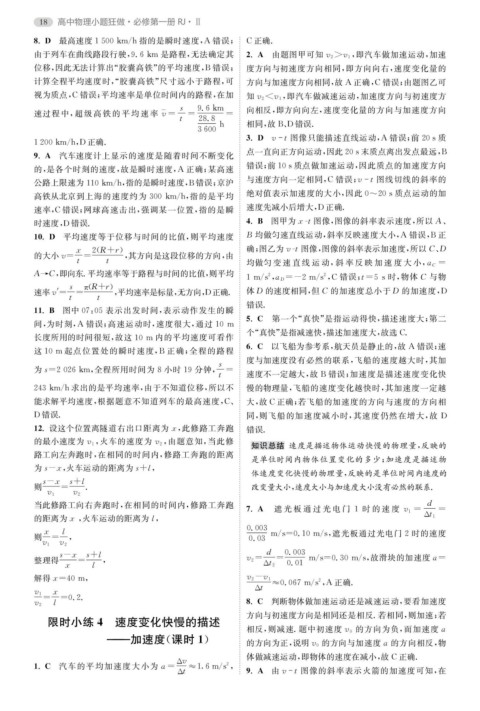 18 高中物理小题狂做·必修第一册 RJ·Ⅱ
8. D 最高速度 1 500 km/h 指的是瞬时速度,A 错误;
由于列车在曲线路段行驶,9.6 km 是路程,无法确定其
位移,因此无法计算出“胶囊高铁”的平均速度,B 错误;
计算全程平均速度时,“胶囊高铁”尺寸远小于路程,可
视为质点,C 错误;平均速率是单位时间内的路程,在加
速过程中,超级高铁的平均速率 v̄ = s/t = 9.6 km/(28.8/3 600 h) =
1 200 km/h,D 正确.
9. A 汽车速度计上显示的速度是随着时间不断变化
的,是各个时刻的速度,故是瞬时速度,A 正确;某高速
公路上限速为 110 km/h,指的是瞬时速度,B 错误;京沪
高铁从北京到上海的速度约为 300 km/h,指的是平均
速率,C 错误;网球高速击出,强调某一位置,指的是瞬
时速度,D 错误.
10. D 平均速度等于位移与时间的比值,则平均速度
的大小 v = x/t = 2(R+r)/t,其方向是这段位移的方向,由
A→C,即向东.平均速率等于路程与时间的比值,则平均
速率 v′ = s/t = π(R+r)/t,平均速率是标量,无方向,D 正确.
11. B 图中 07:05 表示出发时间,表示动作发生的瞬
间,为时刻,A 错误;高速运动时,速度很大,通过 10 m
长度所用的时间很短,故这 10 m 内的平均速度可看作
这 10 m 起点位置处的瞬时速度,B 正确;全程的路程
为 s=2 026 km,全程所用时间为 8 小时 19 分钟, s/t =
243 km/h 求出的是平均速率,由于不知道位移,所以不
能求解平均速度,根据题意不知道列车的最高速度,C、
D 错误.
12. 设这个位置离隧道右出口距离为 x,此修路工奔跑
的最小速度为 v₁,火车的速度为 v₂,由题意知,当此修
路工向左奔跑时,在相同的时间内,修路工奔跑的距离
为 s−x,火车运动的距离为 s+l,
则 (s−x)/v₁ = (s+l)/v₂.
当此修路工向右奔跑时,在相同的时间内,修路工奔跑
的距离为 x,火车运动的距离为 l,
则 x/v₁ = l/v₂,
整理得 (s−x)/x = (s+l)/l,
解得 x=40 m,
v₁/v₂ = x/l = 0.2.
限时小练 4 速度变化快慢的描述
——加速度(课时 1)
1. C 汽车的平均加速度大小为 a = Δv/Δt ≈ 1.6 m/s²,
C 正确.
2. A 由题图甲可知 v₂>v₁,即汽车做加速运动,加速
度方向与初速度方向相同,即方向向右,速度变化量的
方向与加速度方向相同,故 A 正确,C 错误;由题图乙可
知 v₂<v₁,即汽车做减速运动,加速度方向与初速度方
向相反,即方向向左,速度变化量的方向与加速度方向
相同,故 B、D 错误.
3. D v-t 图像只能描述直线运动,A 错误;前 20 s 质
点一直向正方向运动,因此 20 s 末质点离出发点最远,B
错误;前 10 s 质点做加速运动,因此质点的加速度方向
与速度方向一定相同,C 错误;v-t 图线切线的斜率的
绝对值表示加速度的大小,因此 0～20 s 质点运动的加
速度先减小后增大,D 正确.
4. B 图甲为 x-t 图像,图像的斜率表示速度,所以 A、
B 均做匀速直线运动,斜率反映速度大小,A 错误,B 正
确;图乙为 v-t 图像,图像的斜率表示加速度,所以 C、D
均做匀变速直线运动,斜率反映加速度大小,a_C =
1 m/s²,a_D=−2 m/s²,C 错误;t=5 s 时,物体 C 与物
体 D 的速度相同,但 C 的加速度总小于 D 的加速度,D
错误.
5. C 第一个“真快”是指运动得快,描述速度大;第二
个“真快”是指减速快,描述加速度大,故选 C.
6. C 以飞船为参考系,航天员是静止的,故 A 错误;速
度与加速度没有必然的联系,飞船的速度越大时,其加
速度不一定越大,故 B 错误;加速度是描述速度变化快
慢的物理量,飞船的速度变化越快时,其加速度一定越
大,故 C 正确;若飞船的加速度的方向与速度的方向相
同,则飞船的加速度减小时,其速度仍然在增大,故 D
错误.
知识总结 速度是描述物体运动快慢的物理量,反映的
是单位时间内物体位置变化的多少;加速度是描述物
体速度变化快慢的物理量,反映的是单位时间内速度的
改变量大小,速度大小与加速度大小没有必然的联系.
7. A 遮光板通过光电门 1 时的速度 v₁ = d/Δt₁ =
0.003/0.03 m/s=0.10 m/s,遮光板通过光电门 2 时的速度
v₂ = d/Δt₂ = 0.003/0.01 m/s=0.30 m/s,故滑块的加速度 a=
(v₂−v₁)/Δt ≈0.067 m/s²,A 正确.
8. C 判断物体做加速运动还是减速运动,要看加速度
方向与初速度方向是相同还是相反.若相同,则加速;若
相反,则减速.题中初速度 v₀ 的方向为负,而加速度 a
的方向为正,说明 v₀ 的方向与加速度 a 的方向相反,物
体做减速运动,即物体的速度在减小,故 C 正确.
9. A 由 v-t 图像的斜率表示火箭的加速度可知,在